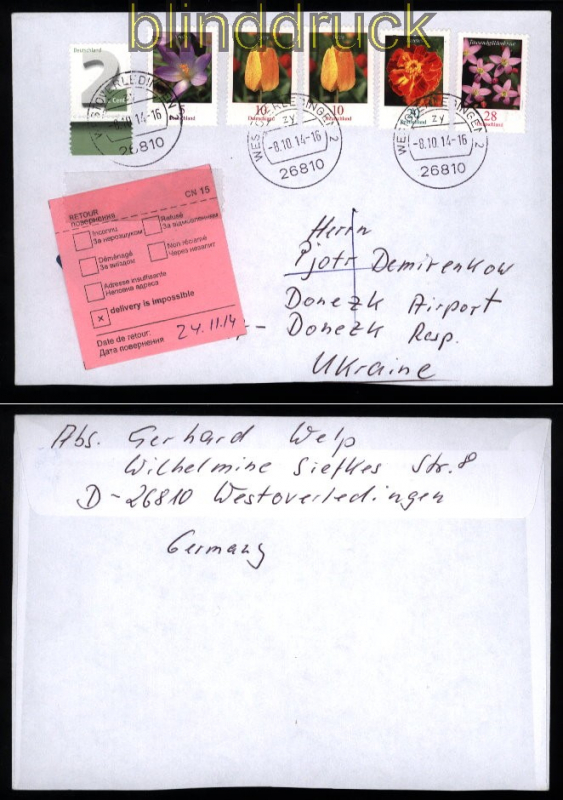 blinddruck
Deutschland
2
Cent
5
Deutschland
10
Deutschland
10
Deutschland
Deutschland
Tausendgüldenkraut
28
Deutschland
WESTOVERLEDINGEN 2
-8.10.14-16
26810
WESTOVERLEDINGEN 2
zy
-8.10.14-16
26810
WESTOVERLEDINGEN 2
zy
-8.10.14-16
26810
CN 15
RETOUR
ПОВЕРНЕННЯ
Inconnu
За нерозшуком
Refusé
За відмовленням
Déménagé
За виїздом
Non réclamé
Через незапит
Adresse insuffisante
Неповна адреса
x delivery is impossible
Date de retour:
Дата повернення
24.11.14
Herrn
Pjotr Demirenkow
Donezk Airport
Donezk Resp.
Ukraine
Abs. Gerhard Welp
Wilhelmine Siefkes Str. 8
D-26810 Westoverledingen
Germany